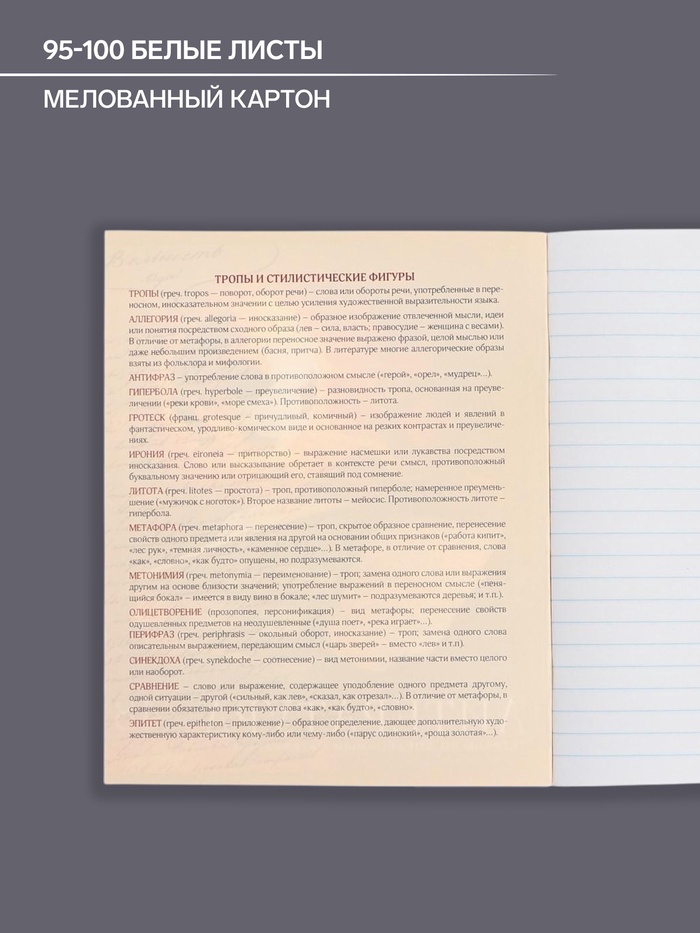 95-100 БЕЛЫЕ ЛИСТЫ
МЕЛОВАННЫЙ КАРТОН
ТРОПЫ И СТИЛИСТИЧЕСКИЕ ФИГУРЫ
ТРОПЫ (греч. tropos — поворот, оборот речи) – слова или обороты речи, употребленные в пере-
носном, иносказательном значении с целью усиления художественной выразительности языка.
АЛЛЕГОРИЯ (греч. allegoria — иносказание) – образное изображение отвлеченной мысли, идеи
или понятия посредством сходного образа (лев – сила, власть; правосудие – женщина с весами).
В отличие от метафоры, в аллегории переносное значение выражено фразой, целой мыслью или
даже небольшим произведением (басня, притча). В литературе многие аллегорические образы
взяты из фольклора и мифологии.
АНТИФРАЗ – употребление слова в противоположном смысле («герой», «орел», «мудрец»...).
ГИПЕРБОЛА (греч. hyperbole — преувеличение) – разновидность тропа, основанная на преуве-
личении («реки крови», «море смеха»). Противоположность – литота.
ГРОТЕСК (франц. grotesque – причудливый, комичный) – изображение людей и явлений в
фантастическом, уродливо-комическом виде и основанное на резких контрастах и преувеличе-
ниях.
ИРОНИЯ (греч. eironeia — притворство) – выражение насмешки или лукавства посредством
иносказания. Слово или высказывание обретает в контексте речи смысл, противоположный
буквальному значению или отрицающий его, ставящий под сомнение.
ЛИТОТА (греч. litotes — простота) – троп, противоположный гиперболе; намеренное преумень-
шение («мужичок с ноготок»). Второе название литоты – мейосис. Противоположность литоте –
гипербола.
МЕТАФОРА (греч. metaphora — перенесение) – троп, скрытое образное сравнение, перенесение
свойств одного предмета или явления на другой на основании общих признаков («работа кипит»,
«лес рук», «темная личность», «каменное сердце»...). В метафоре, в отличие от сравнения, слова
«как», «словно», «как будто» опущены, но подразумеваются.
МЕТОНИМИЯ (греч. metonymia — переименование) – троп; замена одного слова или выражения
другим на основе близости значений; употребление выражений в переносном смысле («пеня-
щийся бокал» – имеется в виду вино в бокале; «лес шумит» – подразумеваются деревья; и т.п.).
ОЛИЦЕТВОРЕНИЕ (прозопопея, персонификация) – вид метафоры; перенесение свойств
одушевленных предметов на неодушевленные («душа поет», «река играет»...).
ПЕРИФРАЗ (греч. periphrasis — окольный оборот, иносказание) – троп; замена одного слова
описательным выражением, передающим смысл («царь зверей» – вместо «лев» и т.п).
СИНЕКДОХА (греч. synekdoche — соотнесение) – вид метонимии, название части вместо целого
или наоборот.
СРАВНЕНИЕ – слово или выражение, содержащее уподобление одного предмета другому,
одной ситуации – другой («сильный, как лев», «сказал, как отрезал»...). В отличие от метафоры, в
сравнении обязательно присутствуют слова «как», «как будто», «словно».
ЭПИТЕТ (греч. epitheton — приложение) – образное определение, дающее дополнительную худо-
жественную характеристику кому-либо или чему-либо («парус одинокий», «роща золотая»...).